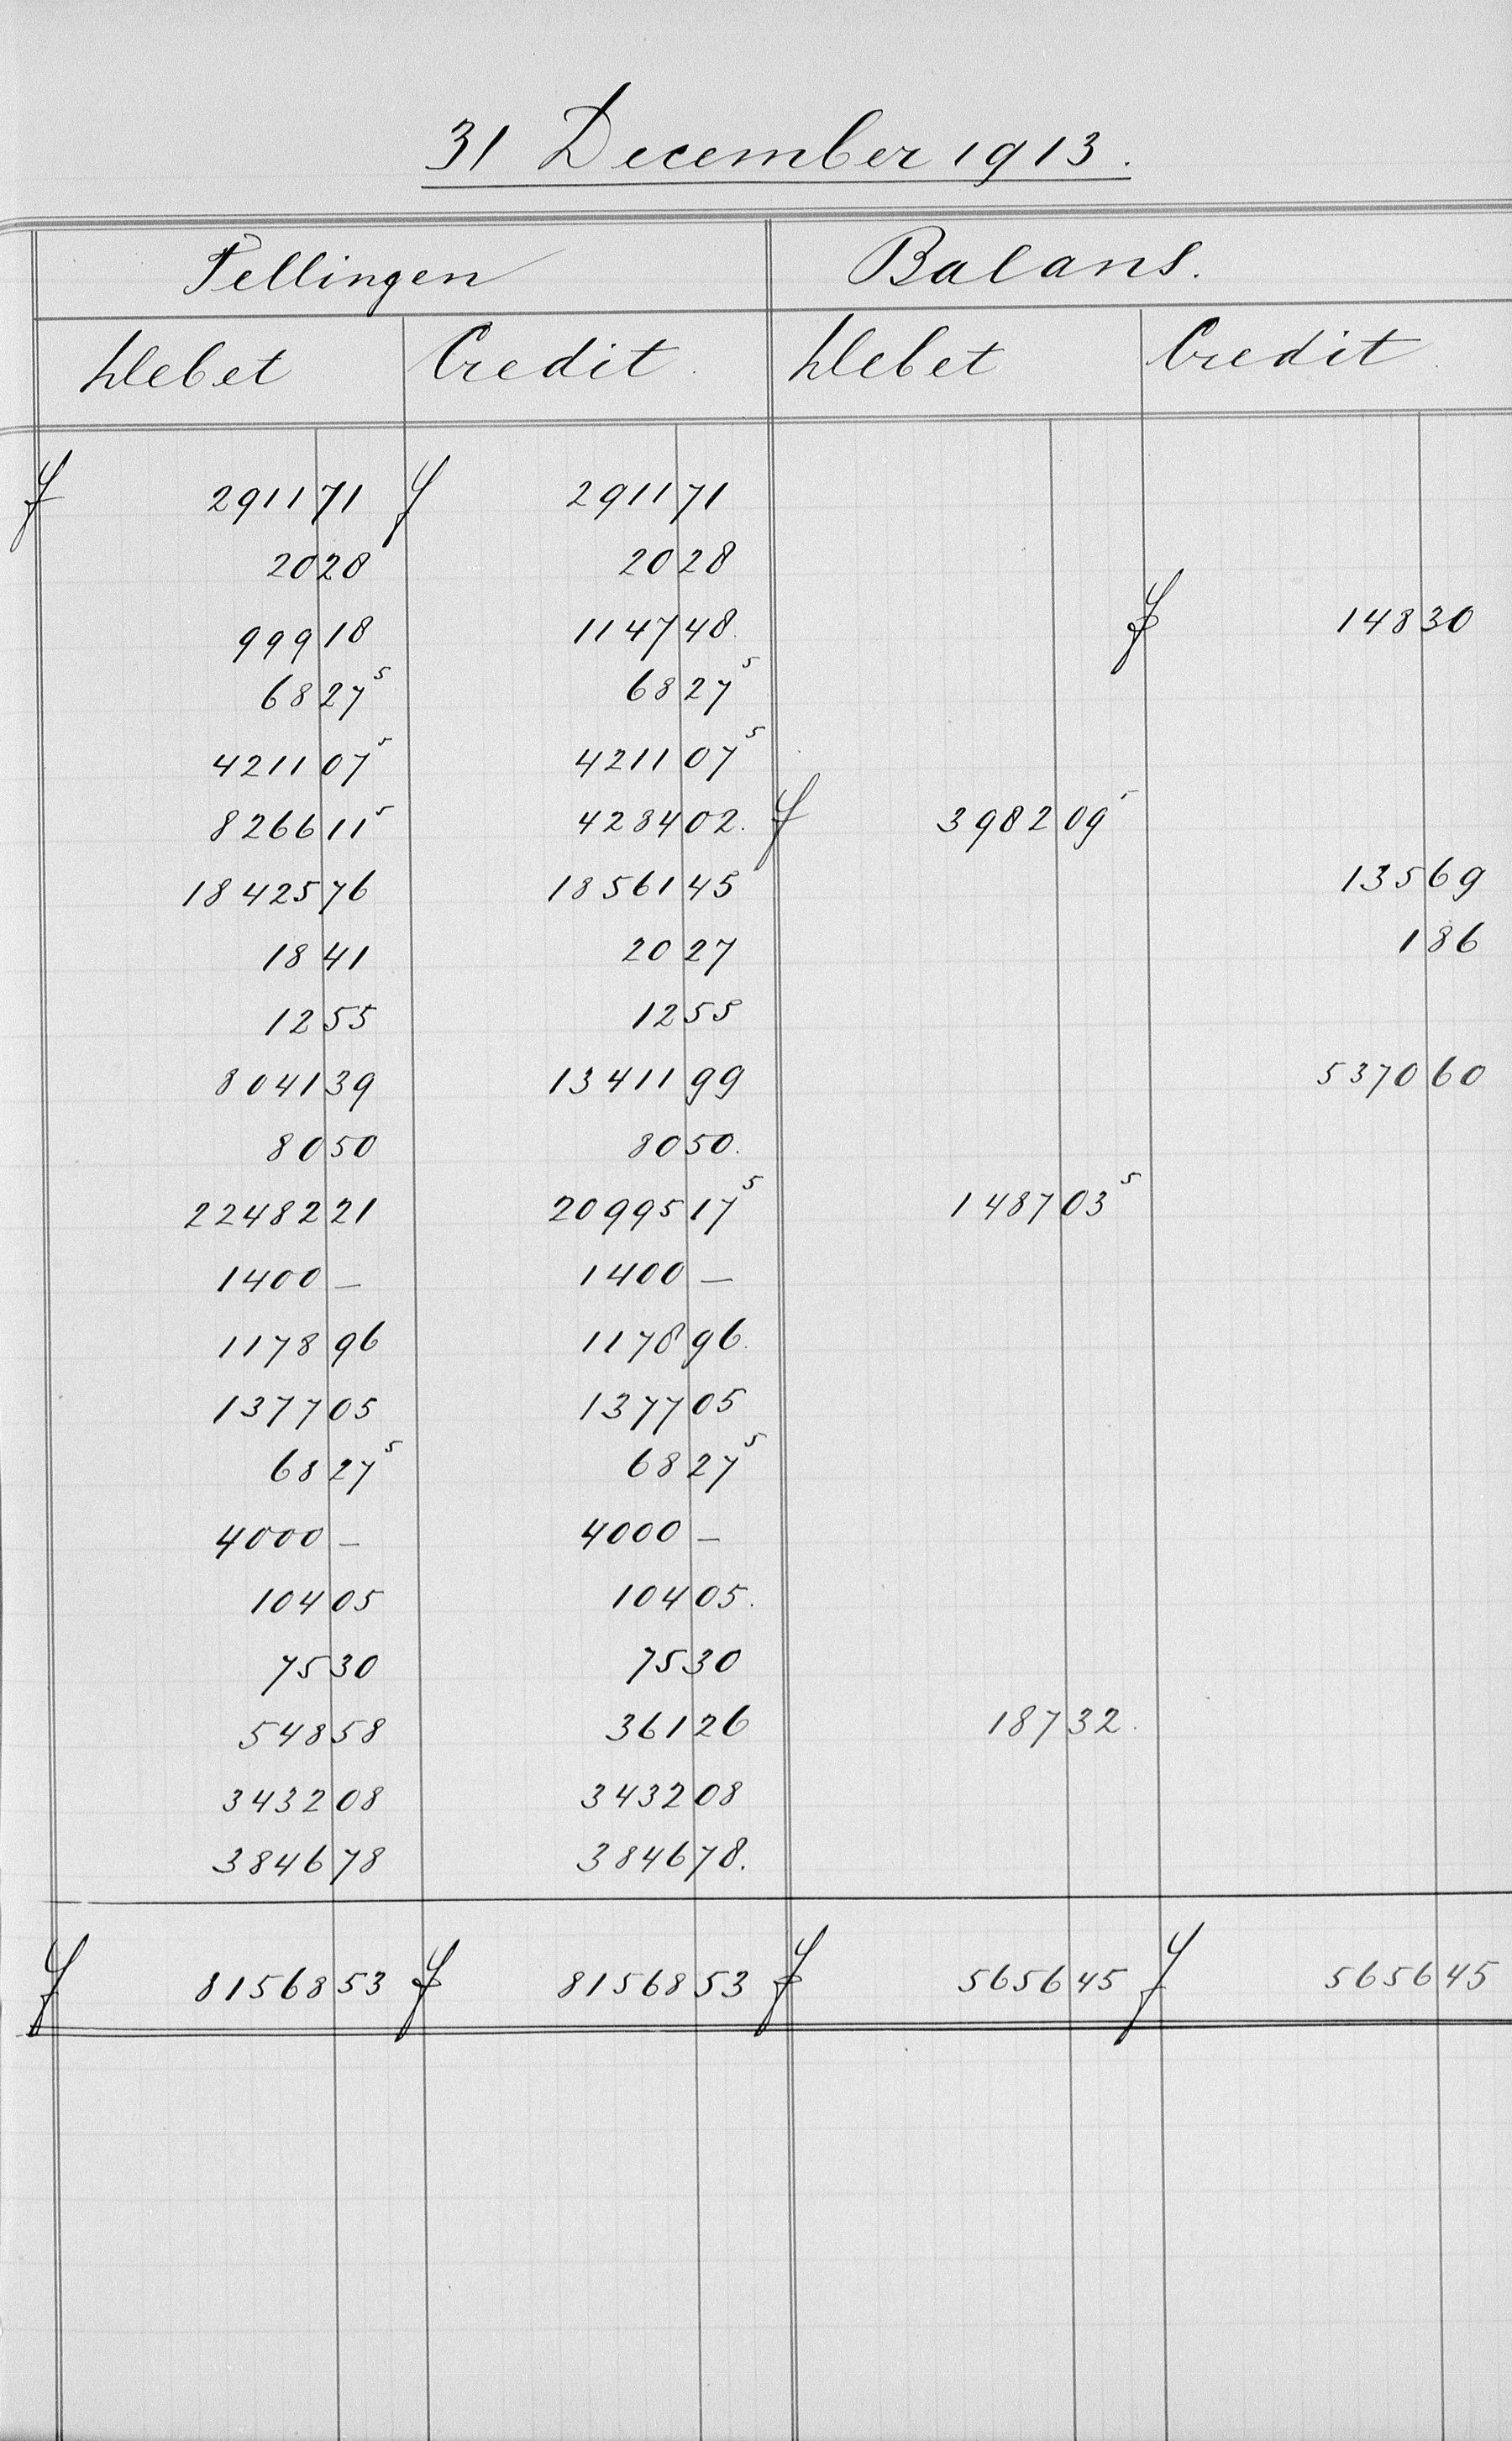 31 December 1913.
Tellingen Balans.
Debet Credit. Debet Credit.
f 2911 71 f 2911 71
20 28 20 28
999 18 1147 48. f 148 30
68 27⁵ 68 27⁵
4211 07⁵ 4211 07⁵
8266 11⁵ 4284 02. f 3982 09⁵
18425 76 18561 45 135 69
18 41 20 27 1 86
12 55 12 55
8041 39 13411 99 5370 60
80 50 80 50.
22482 21 20995 17⁵ 1487 03⁵
1400 — 1400 —
1178 96 1178 96.
1377 05 1377 05
68 27⁵ 68 27⁵
4000 — 4000 —
104 05 104 05.
75 30 75 30
548 58 361 26 187 32.
3432 08 3432 08
3846 78 3846 78.
f 81568 53 f 81568 53 f 5656 45 f 5656 45